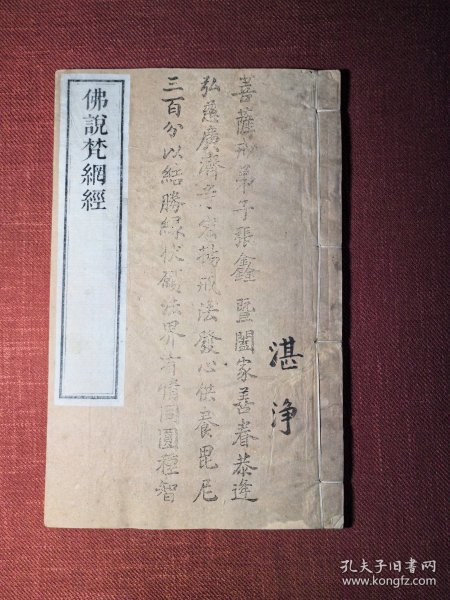 佛說梵網經
菩薩戒弟子張鑫暨闔家善眷恭逢
弘慈廣濟寺宏揚戒法發心供養毘尼
三百分以結勝緣伏願法界有情同圓種智
湛净
孔夫子旧书网
www.kongfz.com